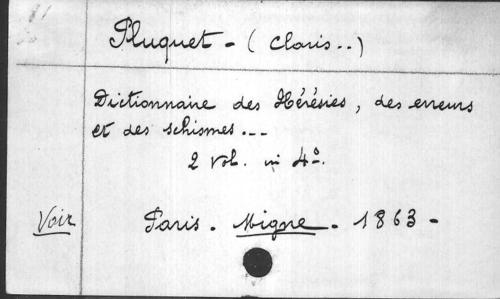 Pluquet - ( Claris.. )
Dictionnaire des Hérésies, des erreurs
et des schismes...
2 vol. in 4°.
Voir
Paris. Migne. 1863 -